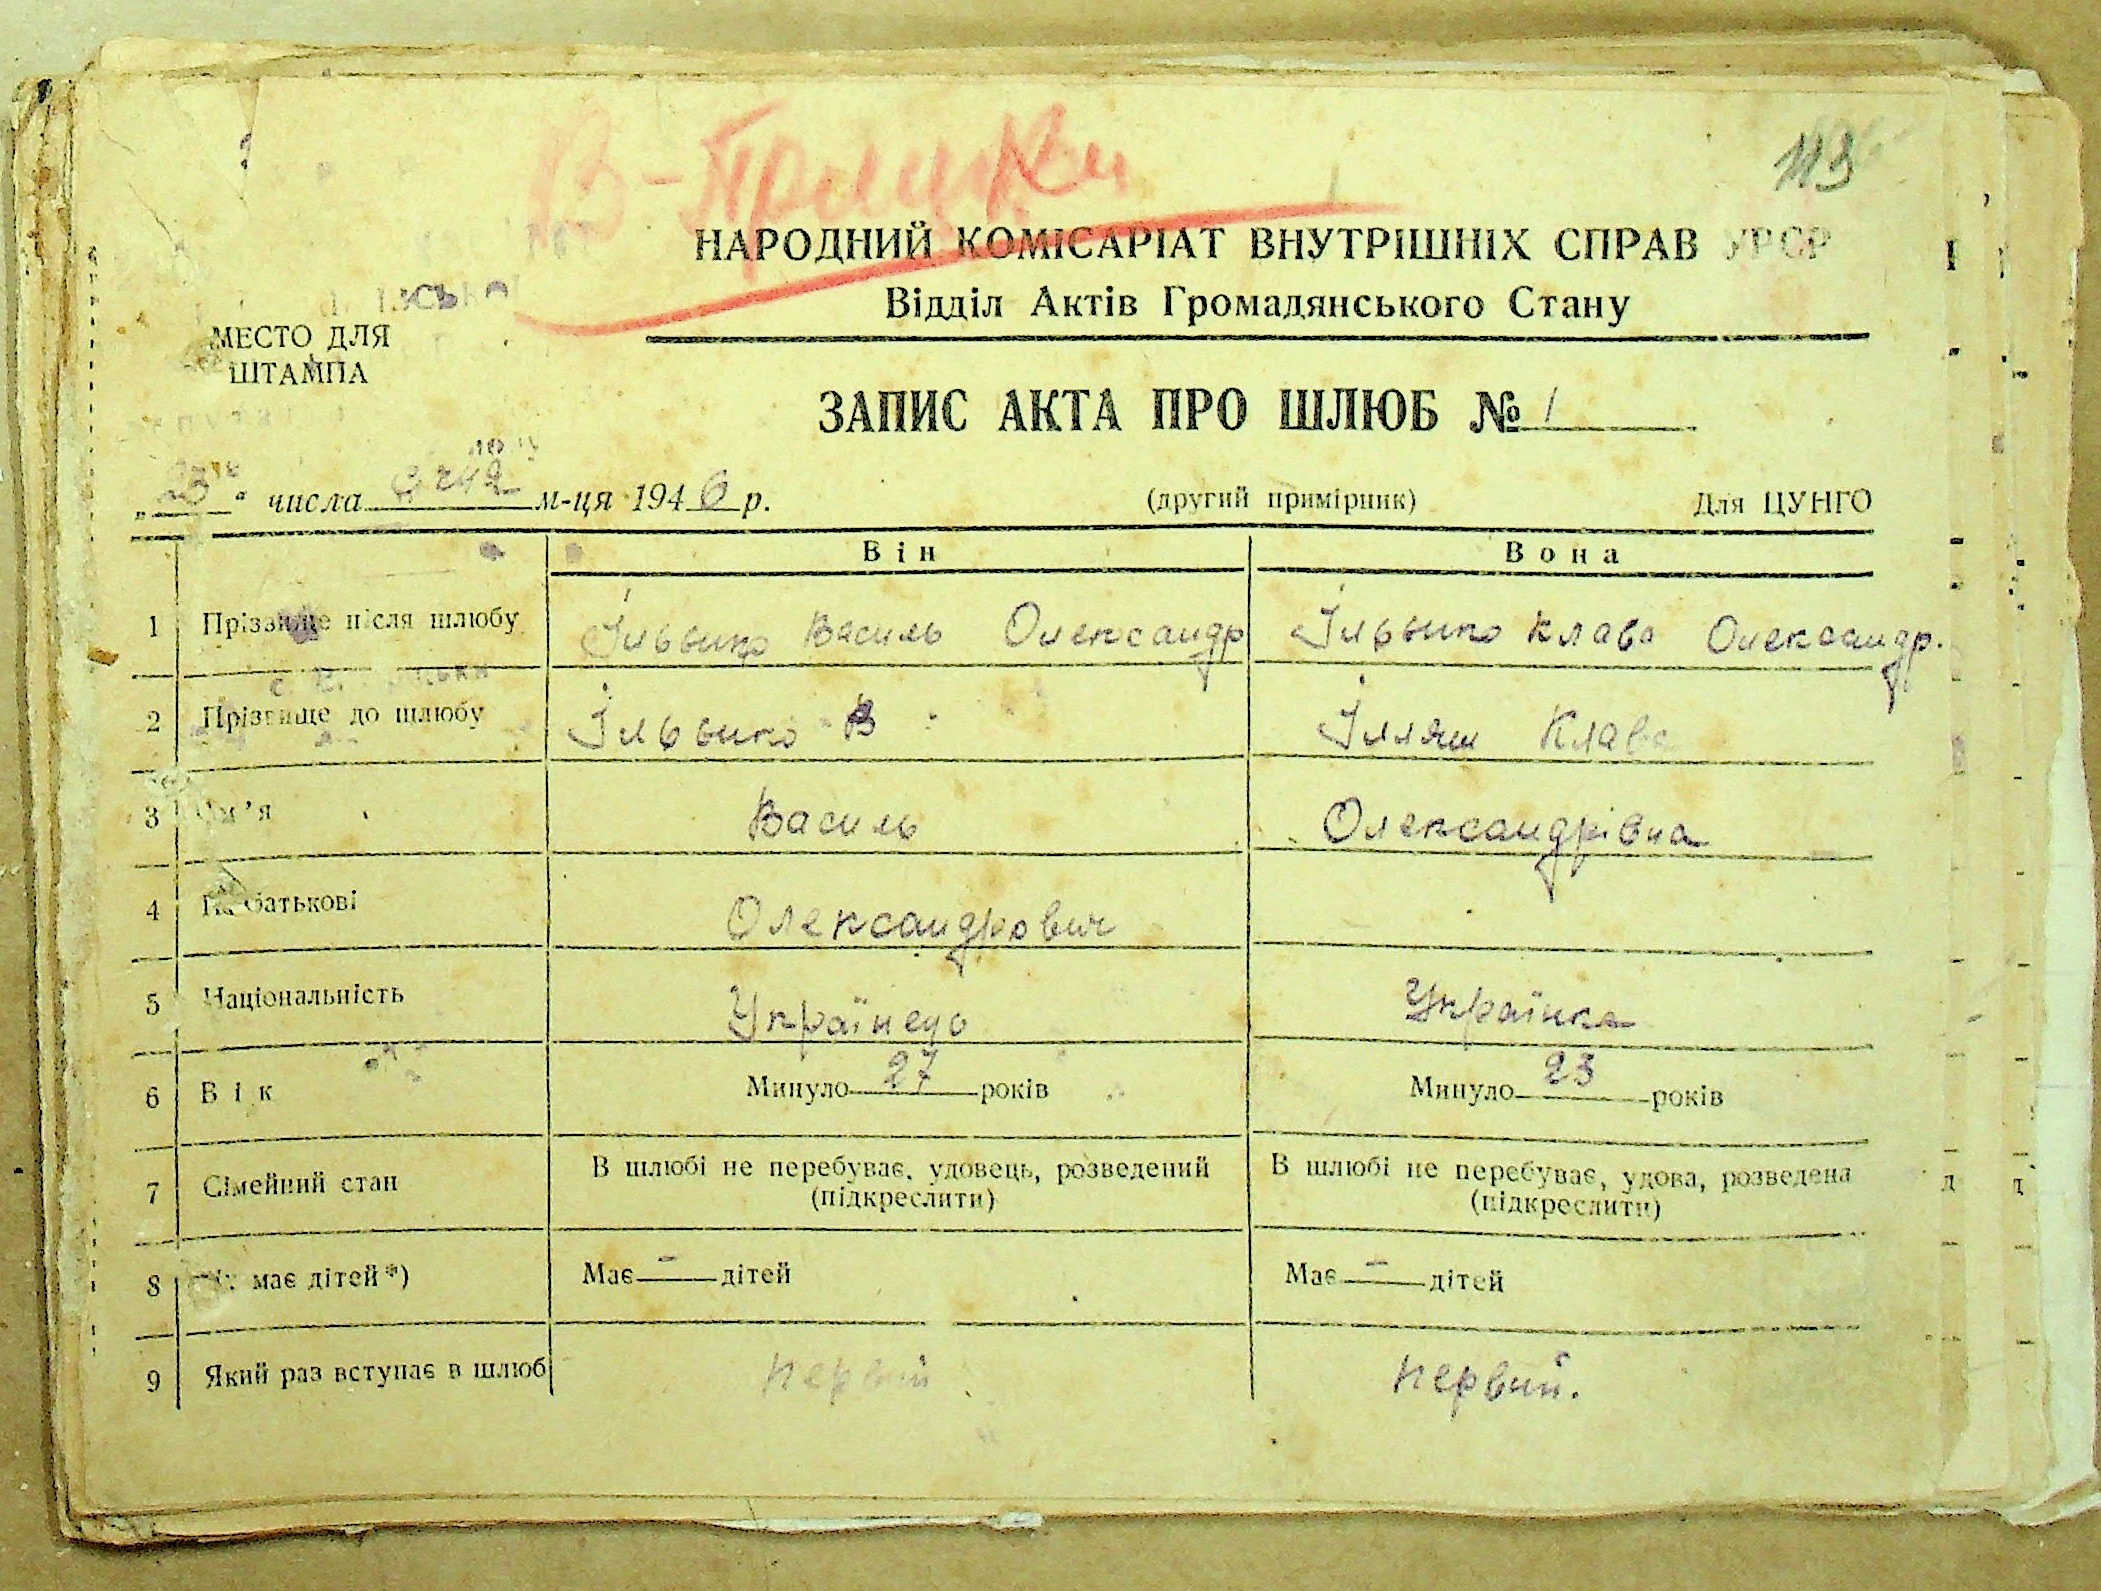 113
НАРОДНИЙ КОМІСАРІАТ ВНУТРІШНІХ СПРАВ УРСР
Відділ Актів Громадянського Стану
МЕСТО ДЛЯ
ШТАМПА
ЗАПИС АКТА ПРО ШЛЮБ № 1
„23“ числа м-ця 1946 р. (другий примірник) Для ЦУНГО
Він Вона
1 Прізвище після шлюбу Василь Олександр Клава Олександр.
2 Прізвище до шлюбу В Ілляш Клава
3 Ім’я Василь Олександрівна
4 По батькові Олександрович
5 Національність Українець Українка
6 Вік Минуло 27 років Минуло 23 років
7 Сімейний стан В шлюбі не перебуває, удовець, розведений (підкреслити) В шлюбі не перебуває, удова, розведена (підкреслити)
8 Чи має дітей*) Має — дітей Має — дітей
9 Який раз вступає в шлюб первий первий.